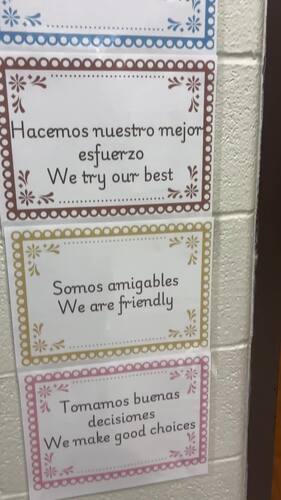 Hacemos nuestro mejor
esfuerzo
We try our best
Somos amigables
We are friendly
Tomamos buenas
decisiones
We make good choices